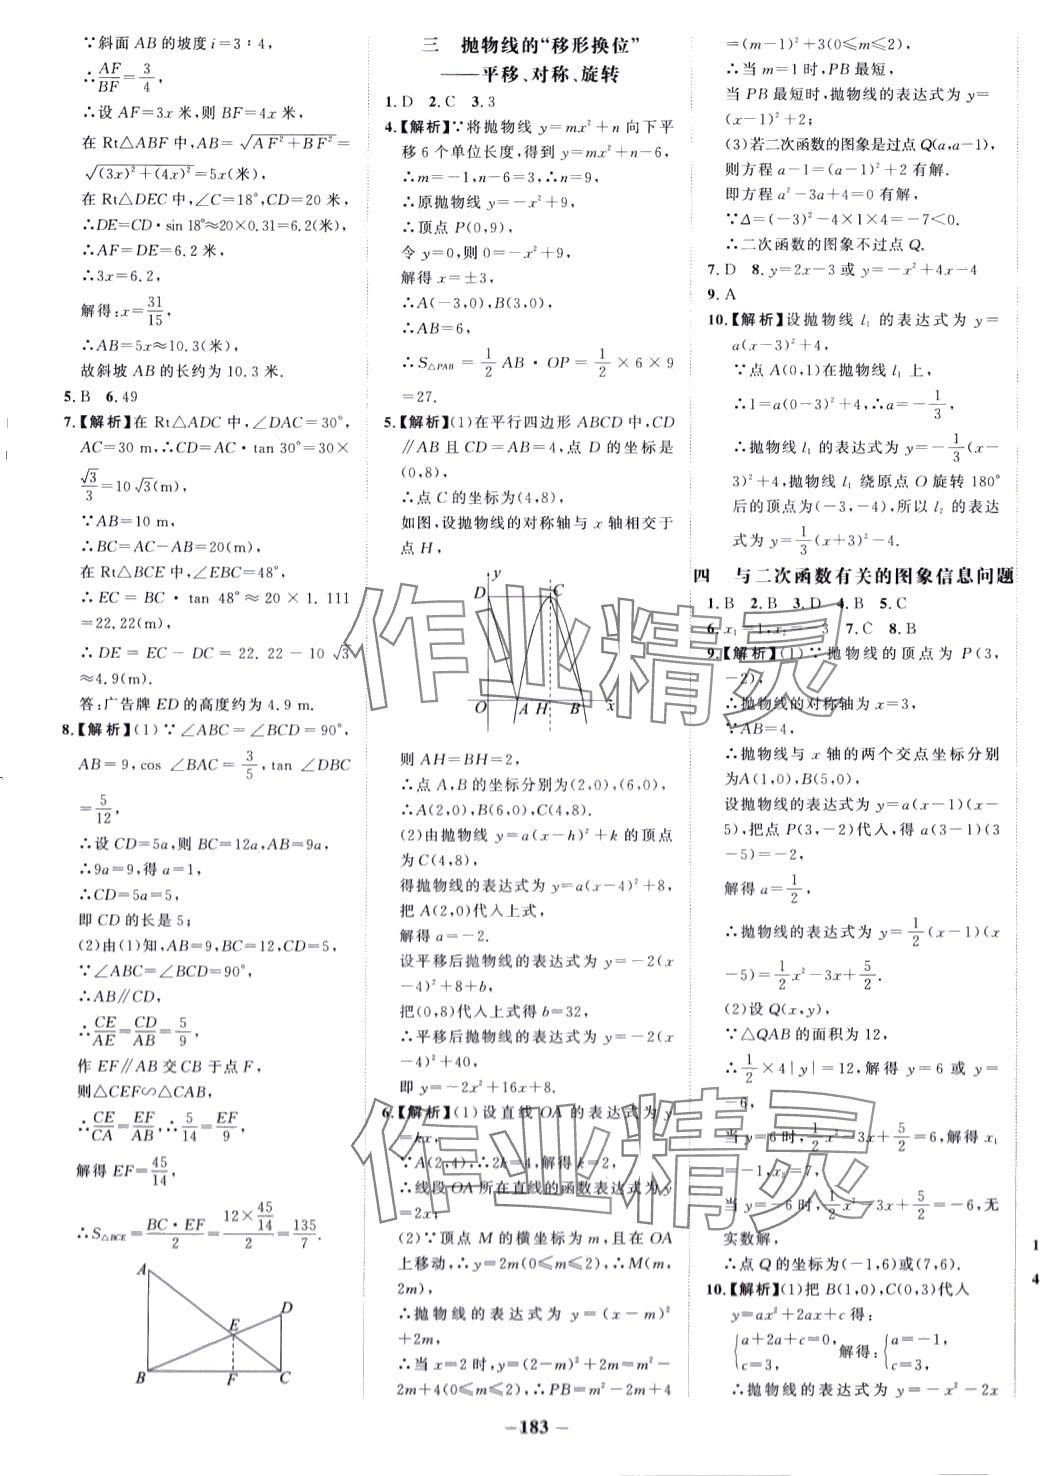 ∵斜面 AB 的坡度 i=3∶4,
∴AF/BF=3/4,
∴设 AF=3x 米,则 BF=4x 米,
在 Rt△ABF 中,AB=√(AF²+BF²)=
√((3x)²+(4x)²)=5x(米),
在 Rt△DEC 中,∠C=18°,CD=20 米,
∴DE=CD·sin 18°≈20×0.31=6.2(米),
∴AF=DE=6.2 米,
∴3x=6.2,
解得:x=31/15,
∴AB=5x≈10.3(米),
故斜坡 AB 的长约为 10.3 米.
5. B 6. 49
7.【解析】在 Rt△ADC 中,∠DAC=30°,
AC=30 m,∴CD=AC·tan 30°=30×
√3/3=10√3(m),
∵AB=10 m,
∴BC=AC-AB=20(m),
在 Rt△BCE 中,∠EBC=48°,
∴EC=BC·tan 48°≈20×1.111
=22.22(m),
∴DE=EC-DC=22.22-10√3
≈4.9(m).
答:广告牌 ED 的高度约为 4.9 m.
8.【解析】(1)∵∠ABC=∠BCD=90°,
AB=9,cos ∠BAC=3/5,tan ∠DBC
=5/12,
∴设 CD=5a,则 BC=12a,AB=9a,
∴9a=9,得 a=1,
∴CD=5a=5,
即 CD 的长是 5;
(2)由(1)知,AB=9,BC=12,CD=5,
∵∠ABC=∠BCD=90°,
∴AB∥CD,
∴CE/AE=CD/AB=5/9,
作 EF∥AB 交 CB 于点 F,
则△CEF∽△CAB,
∴CE/CA=EF/AB,∴5/14=EF/9,
解得 EF=45/14,
∴S△BCE=BC·EF/2=(12×45/14)/2=135/7.
A
D
E
B
F
C
三 抛物线的“移形换位”
——平移、对称、旋转
1. D 2. C 3. 3
4.【解析】∵将抛物线 y=mx²+n 向下平
移 6 个单位长度,得到 y=mx²+n-6,
∴m=-1,n-6=3,∴n=9,
∴原抛物线 y=-x²+9,
∴顶点 P(0,9),
令 y=0,则 0=-x²+9,
解得 x=±3,
∴A(-3,0),B(3,0),
∴AB=6,
∴S△PAB=1/2 AB·OP=1/2×6×9
=27.
5.【解析】(1)在平行四边形 ABCD 中,CD
∥AB 且 CD=AB=4,点 D 的坐标是
(0,8),
∴点 C 的坐标为(4,8),
如图,设抛物线的对称轴与 x 轴相交于
点 H,
y
D
C
O
A
H
B
x
则 AH=BH=2,
∴点 A,B 的坐标分别为(2,0),(6,0),
∴A(2,0),B(6,0),C(4,8).
(2)由抛物线 y=a(x-h)²+k 的顶点
为 C(4,8),
得抛物线的表达式为 y=a(x-4)²+8,
把 A(2,0)代入上式,
解得 a=-2.
设平移后抛物线的表达式为 y=-2(x
-4)²+8+b,
把(0,8)代入上式得 b=32,
∴平移后抛物线的表达式为 y=-2(x
-4)²+40,
即 y=-2x²+16x+8.
6.【解析】(1)设直线 OA 的表达式为 y
=kx,
∵A(2,4),∴2k=4,解得 k=2,
∴线段 OA 所在直线的函数表达式为 y
=2x;
(2)∵顶点 M 的横坐标为 m,且在 OA
上移动,∴y=2m(0≤m≤2),∴M(m,
2m),
∴抛物线的表达式为 y=(x-m)²
+2m,
∴当 x=2 时,y=(2-m)²+2m=m²-
2m+4(0≤m≤2),∴PB=m²-2m+4
=(m-1)²+3(0≤m≤2),
∴当 m=1 时,PB 最短,
当 PB 最短时,抛物线的表达式为 y=
(x-1)²+2;
(3)若二次函数的图象是过点 Q(a,a-1),
则方程 a-1=(a-1)²+2 有解.
即方程 a²-3a+4=0 有解,
∵Δ=(-3)²-4×1×4=-7<0.
∴二次函数的图象不过点 Q.
7. D 8. y=2x-3 或 y=-x²+4x-4
9. A
10.【解析】设抛物线 l₁ 的表达式为 y=
a(x-3)²+4,
∵点 A(0,1)在抛物线 l₁ 上,
∴1=a(0-3)²+4,∴a=-1/3,
∴抛物线 l₁ 的表达式为 y=-1/3(x-
3)²+4,抛物线 l₁ 绕原点 O 旋转 180°
后的顶点为(-3,-4),所以 l₂ 的表达
式为 y=1/3(x+3)²-4.
四 与二次函数有关的图象信息问题
1. B 2. B 3. D 4. B 5. C
6. x₁=1,x₂=-3 7. C 8. B
9.【解析】(1)∵抛物线的顶点为 P(3,
-2),
∴抛物线的对称轴为 x=3,
∵AB=4,
∴抛物线与 x 轴的两个交点坐标分别
为A(1,0),B(5,0),
设抛物线的表达式为 y=a(x-1)(x-
5),把点 P(3,-2)代入,得 a(3-1)(3
-5)=-2,
解得 a=1/2,
∴抛物线的表达式为 y=1/2(x-1)(x
-5)=1/2x²-3x+5/2.
(2)设 Q(x,y),
∵△QAB 的面积为 12,
∴1/2×4|y|=12,解得 y=6 或 y=
-6,
当 y=6 时,1/2x²-3x+5/2=6,解得 x₁
=-1,x₂=7,
当 y=-6 时,1/2x²-3x+5/2=-6,无
实数解,
∴点 Q 的坐标为(-1,6)或(7,6).
10.【解析】(1)把 B(1,0),C(0,3)代入
y=ax²+2ax+c 得:
{a+2a+c=0, 解得:{a=-1,
{c=3, {c=3,
∴抛物线的表达式为 y=-x²-2x
1
4
作业精灵
作业精灵
-183-